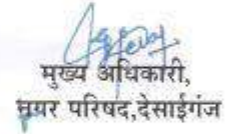 मुख्य अधिकारी,
नगर परिषद,देसाईगंज